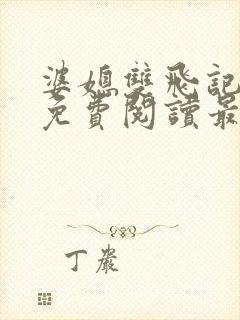 婆媳雙飛記
免費閱讀最
丁嚴